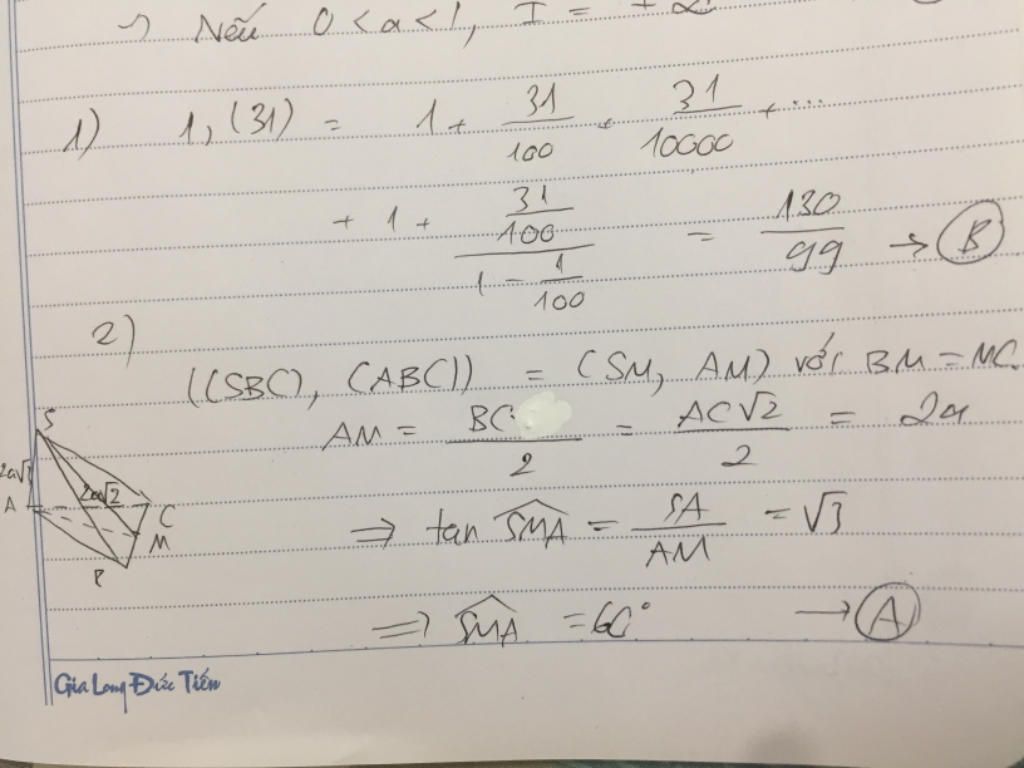 → Nếu 0 < a < 1, I = + ∞
1) 1,(31) = 1 + 31/100 + 31/10000 + ...
+ 1 + (31/100)/(1 - 1/100) = 130/99 → B
2)
((SBC), (ABC)) = (SM, AM) với BM = MC.
AM = BC/2 = AC√2/2 = 2a
⇒ tan SMA = SA/AM = √3
⇒ SMA = 60° → A
S
2a√3
2a√2
A
C
M
B
Gia Long Đức Tiến